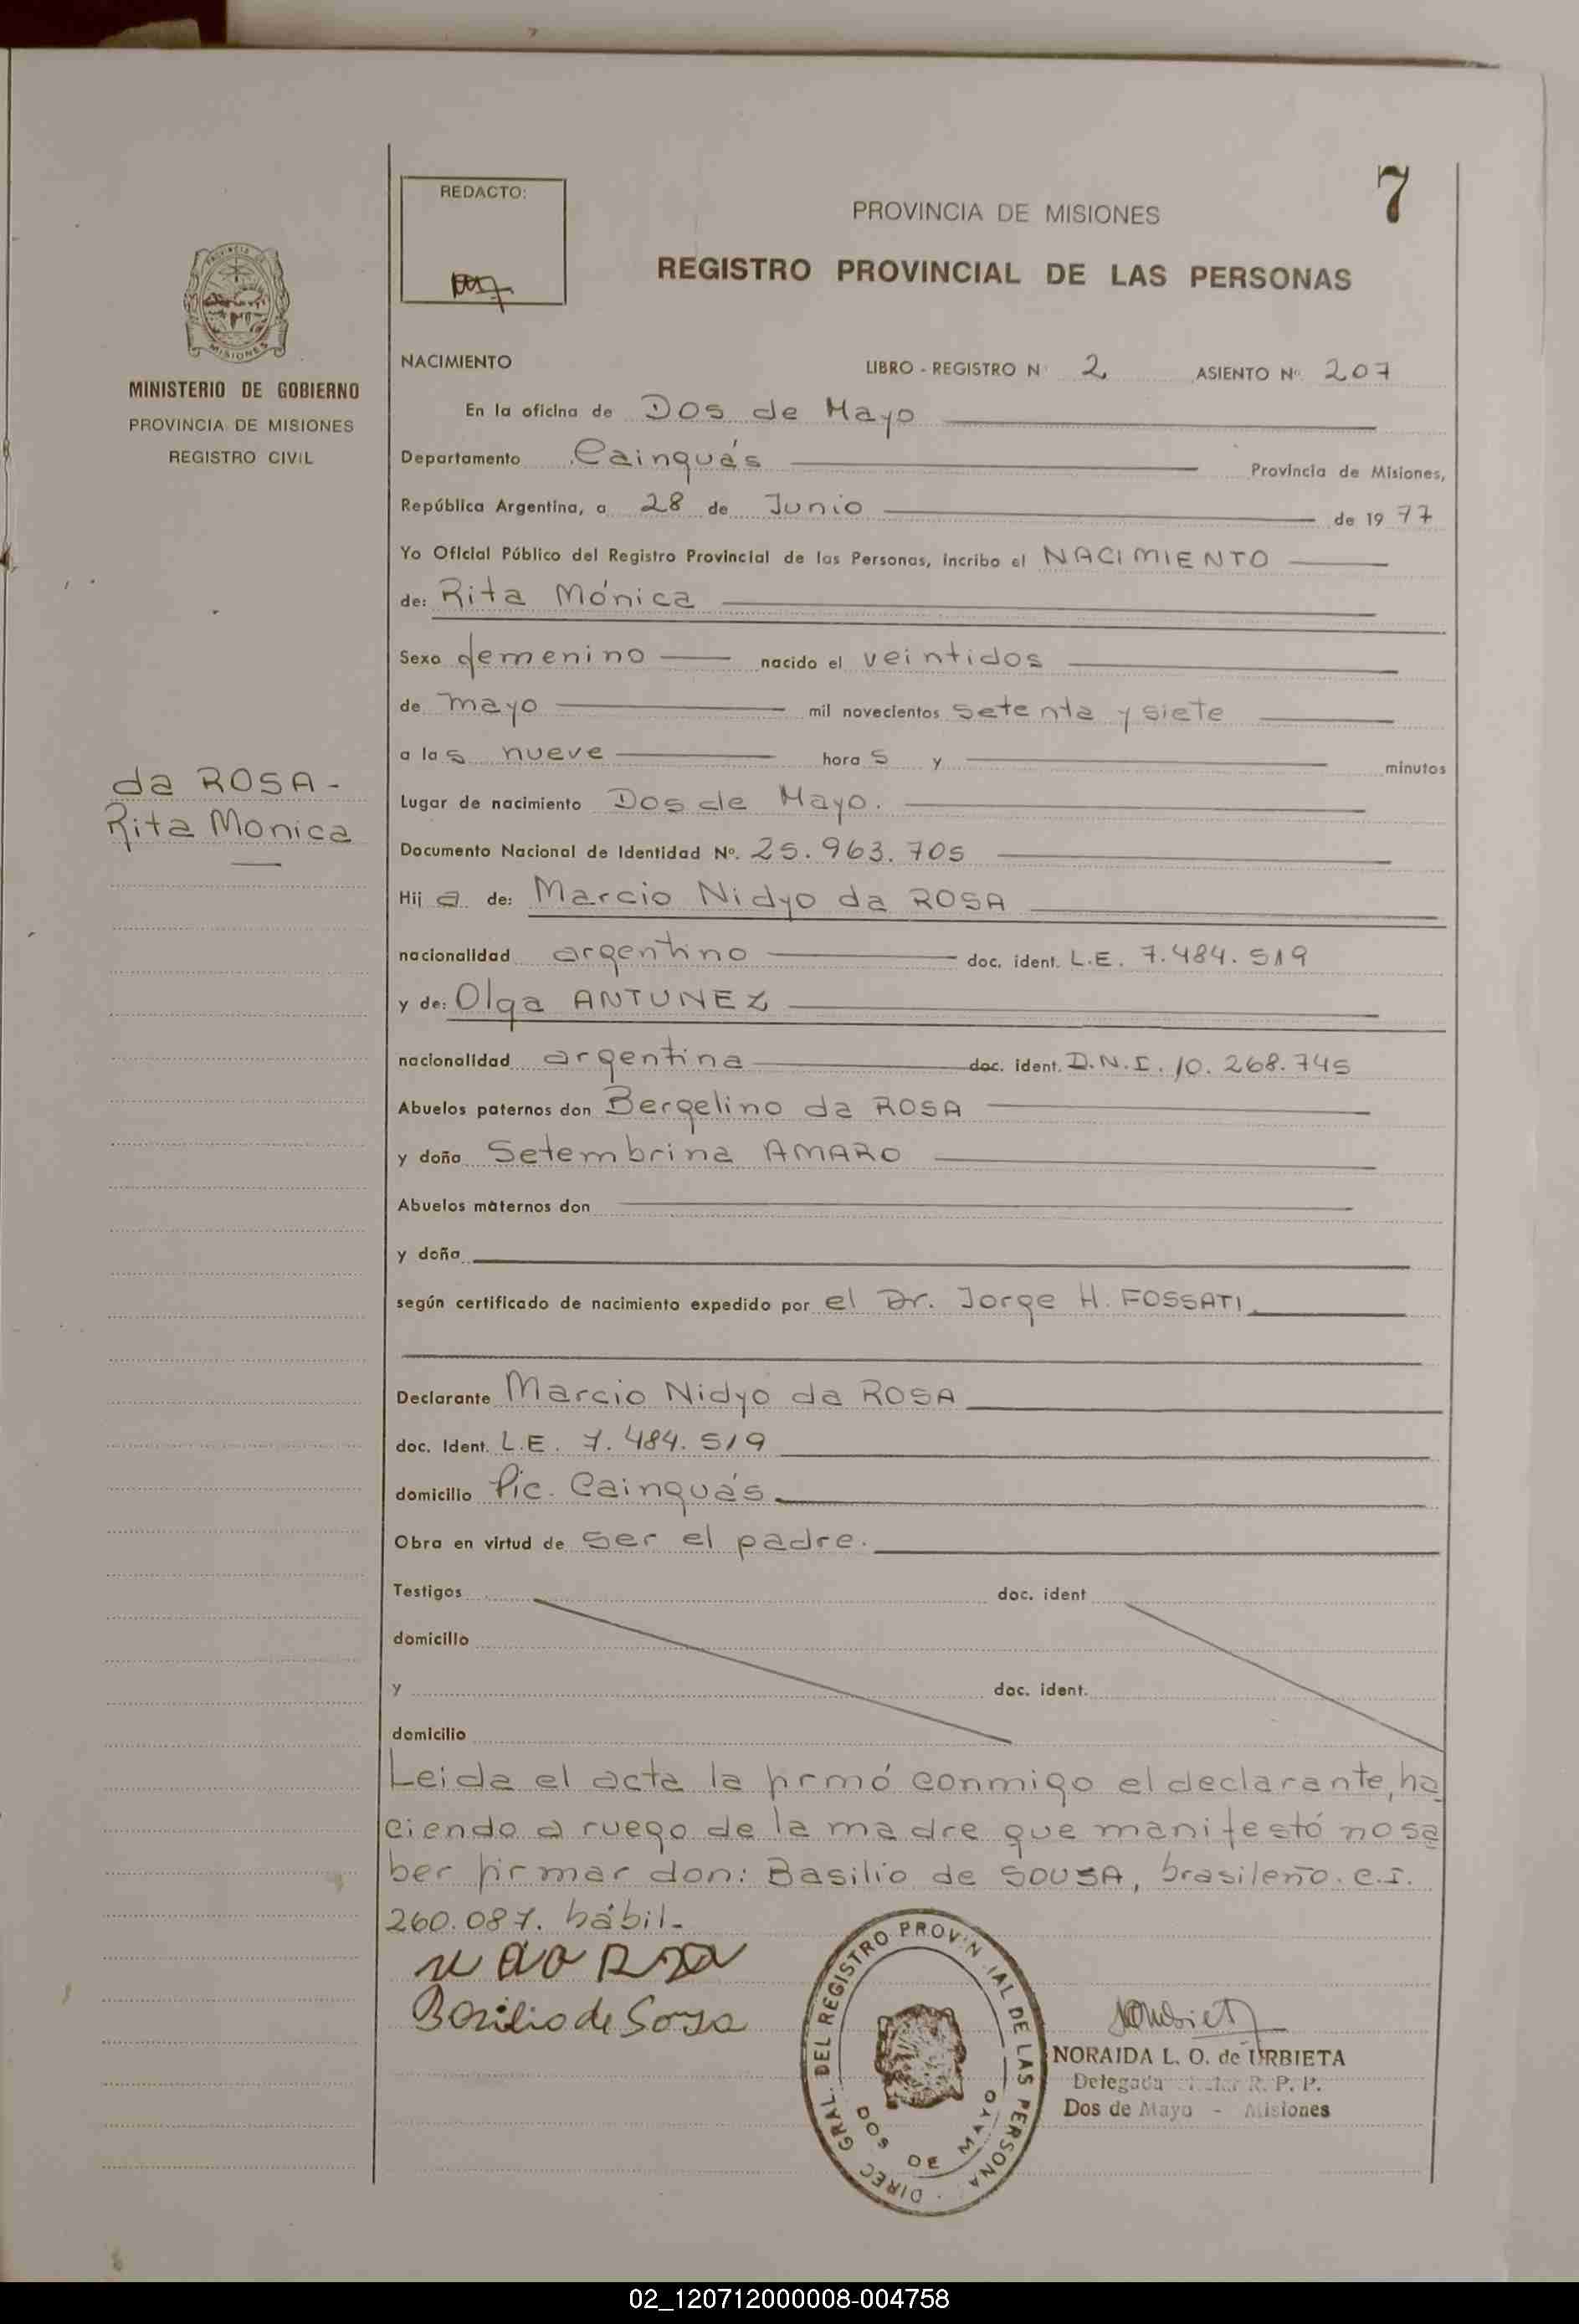 7
REDACTO:
PROVINCIA DE MISIONES
REGISTRO PROVINCIAL DE LAS PERSONAS
PROVINCIA
MISIONES
MINISTERIO DE GOBIERNO
PROVINCIA DE MISIONES
REGISTRO CIVIL
da ROSA-
Rita Monica
NACIMIENTO LIBRO - REGISTRO N 2 ASIENTO Nº 207
En la oficina de Dos de Mayo
Departamento Cainguás Provincia de Misiones,
República Argentina, a 28 de Junio de 1977
Yo Oficial Público del Registro Provincial de las Personas, incribo el NACIMIENTO
de: Rita Mónica
Sexo femenino nacido el veintidos
de mayo mil novecientos setenta y siete
a las nueve horas y minutos
Lugar de nacimiento Dos de Mayo.
Documento Nacional de Identidad Nº. 25.963.705
Hija de: Marcio Nidyo da ROSA
nacionalidad argentino doc. ident. L.E. 7.484.519
y de: Olga ANTUNEZ
nacionalidad argentina doc. ident. D.N.I. 10.268.745
Abuelos paternos don Bergelino da ROSA
y doña Setembrina AMARO
Abuelos maternos don
y doña
según certificado de nacimiento expedido por el Dr. Jorge H. FOSSATI
Declarante Marcio Nidyo da ROSA
doc. Ident. L.E. 7.484.519
domicilio Pic. Cainguás
Obra en virtud de ser el padre.
Testigos doc. ident
domicilio
y doc. ident.
domicilio
Leida el acta la firmó conmigo el declarante, ha
ciendo a ruego de la madre que manifestó no sa
ber firmar don: Basilio de SOUSA, brasileño. C.I.
260.087. hábil.
Basilio de Soysa
DIREC GRAL. DEL REGISTRO PROVIN IAL DE LAS PERSONA
DOS DE MAYO
NORAIDA L. O. de URBIETA
Delegada R. P. P.
Dos de Mayo - Misiones
02_120712000008-004758